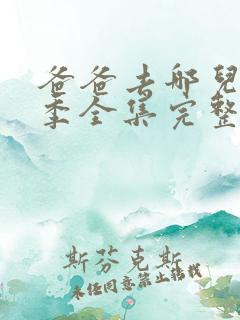 爸爸去哪兒
季全集完整
斯芬克斯
未经同意禁止转载